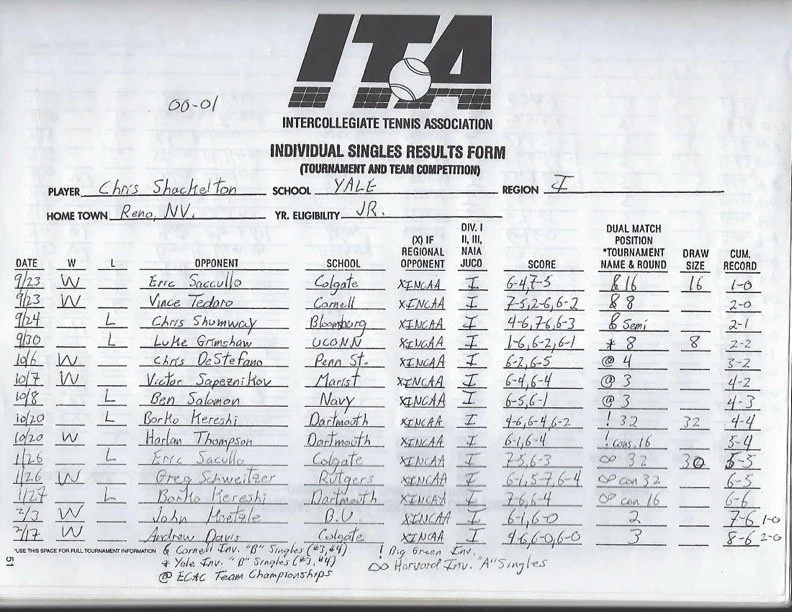 ITA
00-01
INTERCOLLEGIATE TENNIS ASSOCIATION
INDIVIDUAL SINGLES RESULTS FORM
(TOURNAMENT AND TEAM COMPETITION)
PLAYER Chris Shackelton SCHOOL YALE REGION I
HOME TOWN Reno, NV. YR. ELIGIBILITY JR.
DATE W L OPPONENT SCHOOL (X) IF REGIONAL OPPONENT DIV. I II, III, NAIA JUCO SCORE DUAL MATCH POSITION *TOURNAMENT NAME & ROUND DRAW SIZE CUM. RECORD
9/23 W Eric Saccullo Colgate XINCAA I 6-4,7-5 & 16 16 1-0
9/23 W Vince Tedoro Cornell XINCAA I 7-5,2-6,6-2 & 8 2-0
9/24 L Chris Shumway Bloomsburg XINCAA I 4-6,7-6,6-3 & Semi 2-1
9/30 L Luke Grimshaw UCONN XINCAA I 1-6,6-2,6-1 * 8 8 2-2
10/6 W Chris DeStefano Penn St. XINCAA I 6-2,6-5 @ 4 3-2
10/7 W Victor Sapeznikov Marist XINCAA I 6-4,6-4 @ 3 4-2
10/8 L Ben Salomon Navy XINCAA I 6-5,6-1 @ 3 4-3
10/20 L Borko Kereshi Dartmouth XINCAA I 4-6,6-4,6-2 ! 32 32 4-4
10/20 W Harlan Thompson Dartmouth XINCAA I 6-1,6-4 ! cons.16 5-4
1/26 L Eric Sacullo Colgate XINCAA I 7-5,6-3 ∞ 32 30 5-5
1/26 W Greg Schweitzer Rutgers XINCAA I 6-1,5-7,6-4 ∞ con 32 6-5
1/27 L Borko Kereshi Dartmouth XINCAA I 7-6,6-4 ∞ con 16 6-6
2/3 W John Hoetzle B.U. XINCAA I 6-1,6-0 2 7-6 1-0
2/17 W Andrew Davis Colgate XINCAA I 4-6,6-0,6-0 3 8-6 2-0
*USE THIS SPACE FOR FULL TOURNAMENT INFORMATION & Cornell Inv. "B" Singles (#3,#4) ! Big Green Inv.
* Yale Inv. "B" Singles (#3,#4) ∞ Harvard Inv. "A" Singles
@ ECAC Team Championships
51